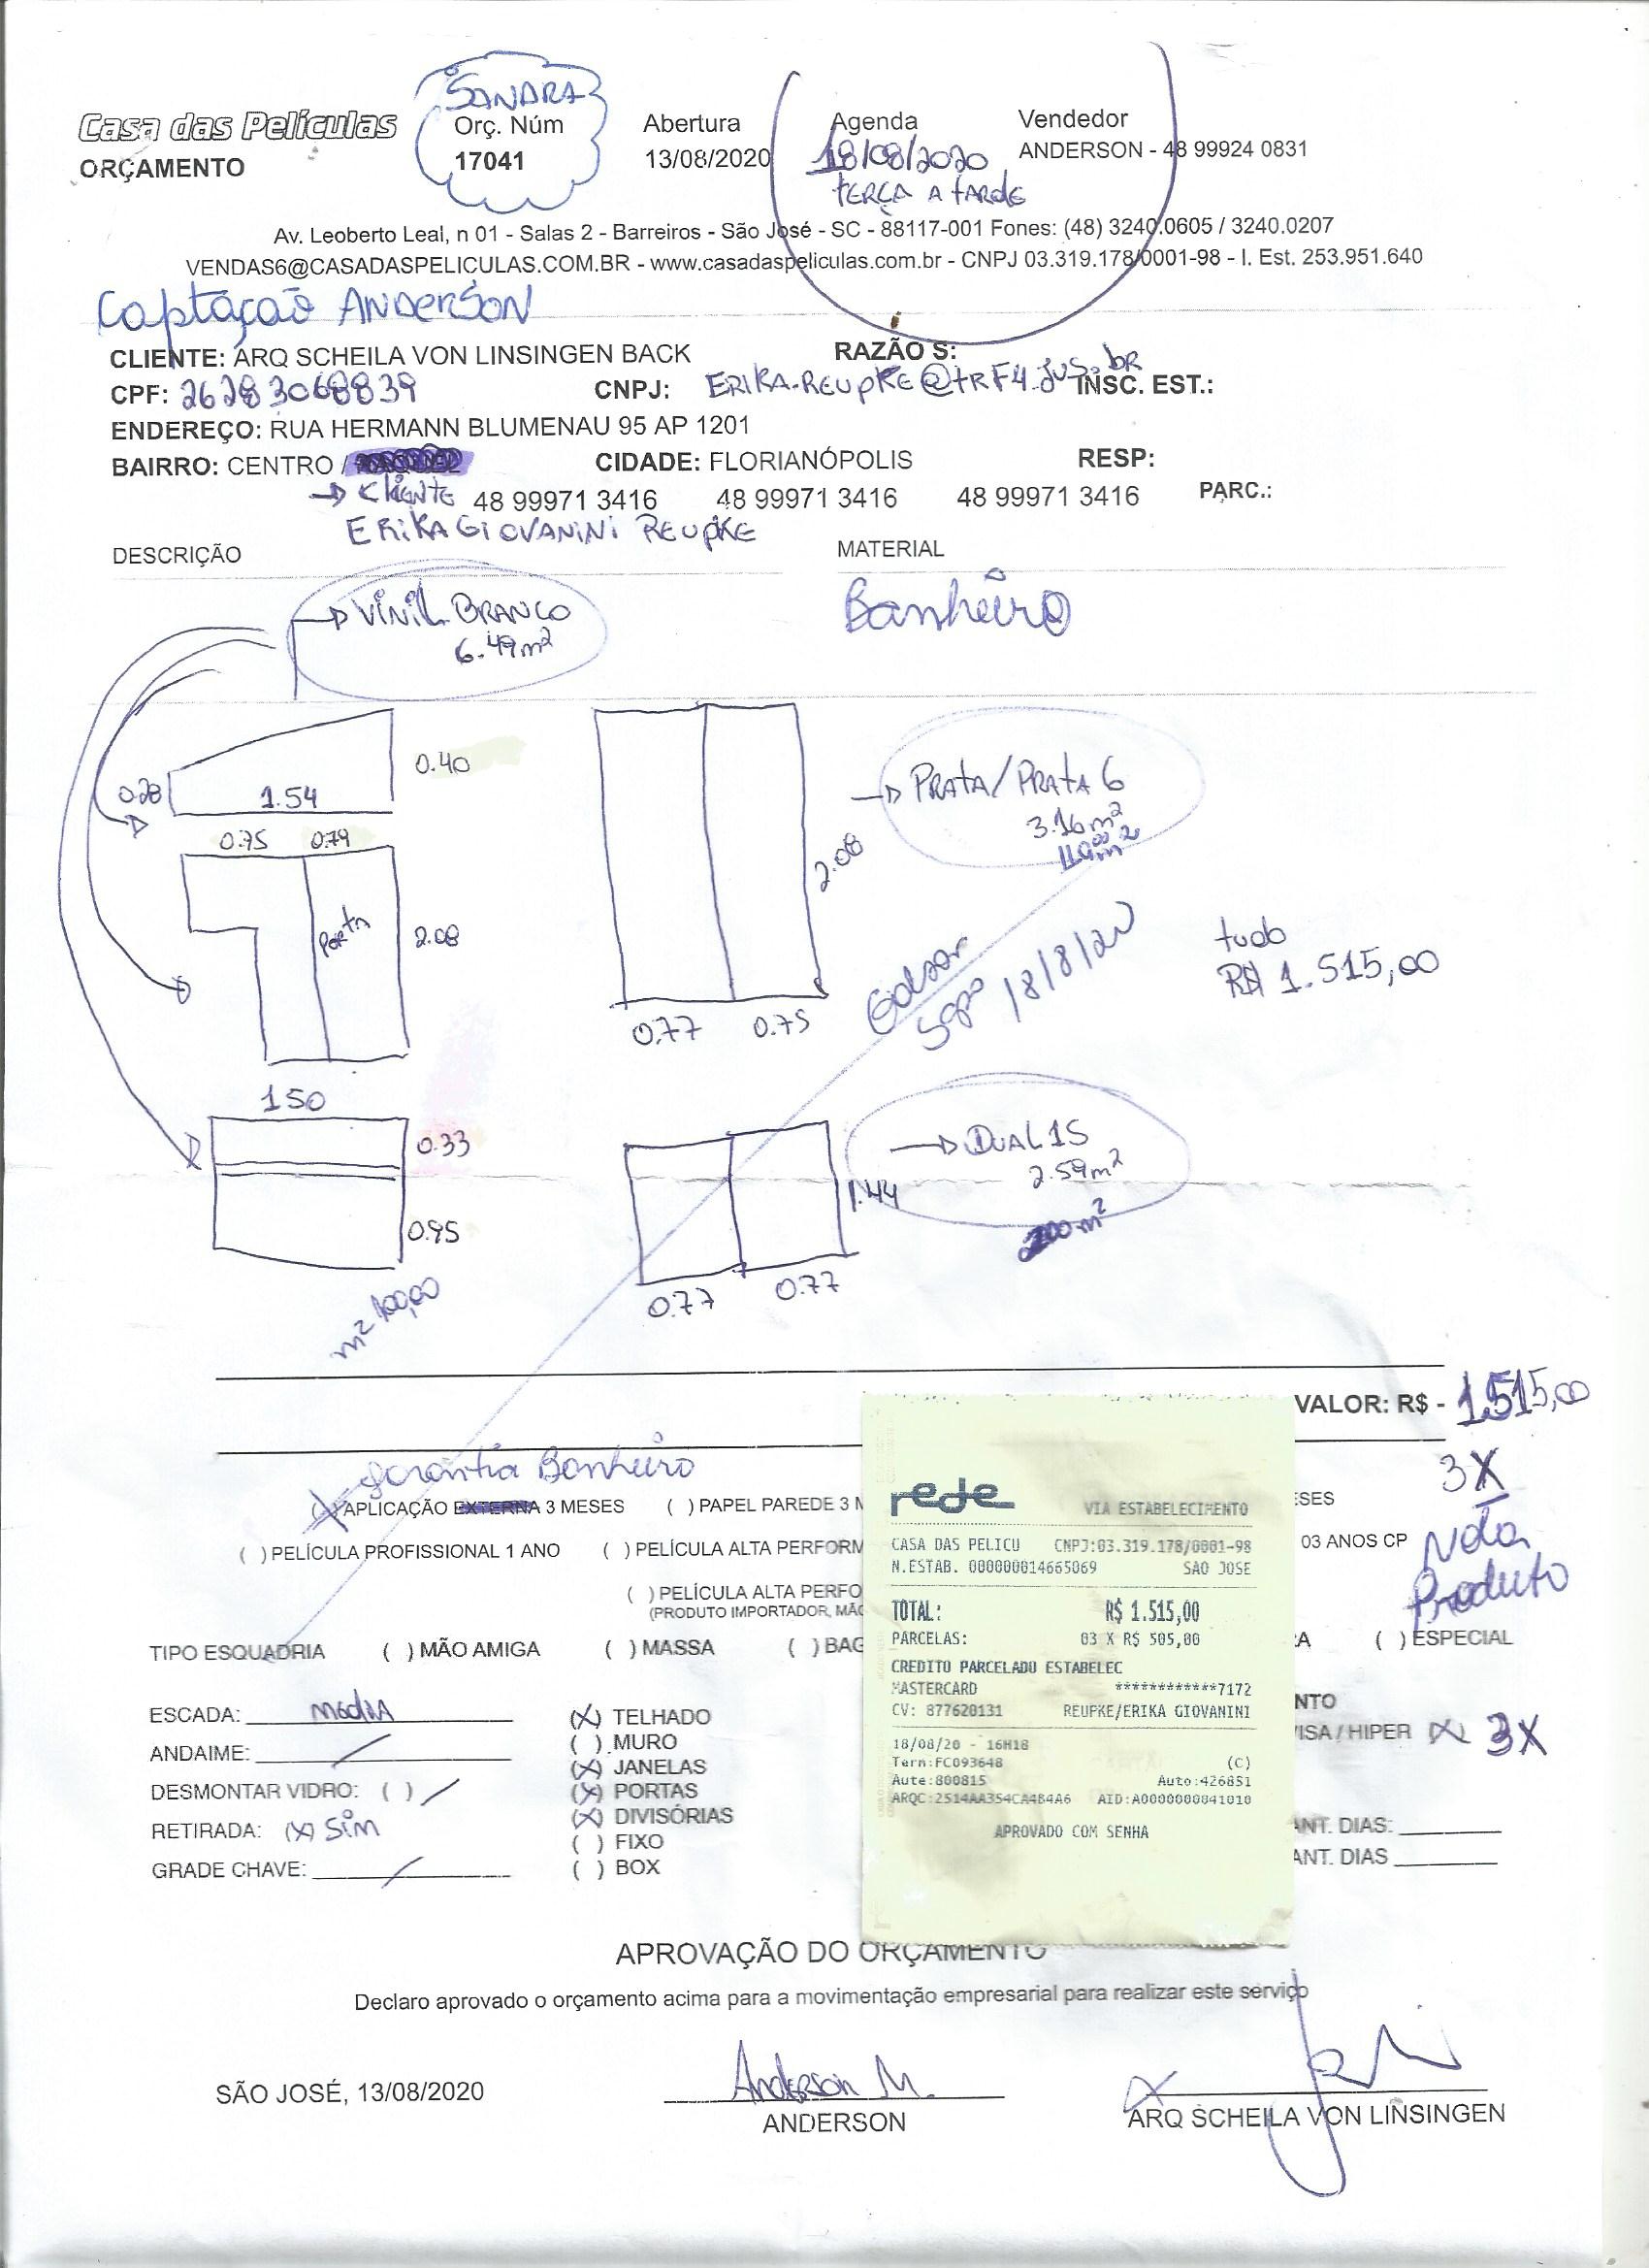 SANDRA
Casa das Películas
Orç. Núm
Abertura
Agenda
Vendedor
ORÇAMENTO
17041
13/08/2020
18/08/2020
ANDERSON - 48 99924 0831
TERÇA A TARDE
Av. Leoberto Leal, n 01 - Salas 2 - Barreiros - São José - SC - 88117-001 Fones: (48) 3240.0605 / 3240.0207
VENDAS6@CASADASPELICULAS.COM.BR - www.casadaspeliculas.com.br - CNPJ 03.319.178/0001-98 - I. Est. 253.951.640
Captação ANDERSON
CLIENTE: ARQ SCHEILA VON LINSINGEN BACK
RAZÃO S:
CPF: 26283068839
CNPJ: ERIKA.REUPKE@TRF4.JUS.bR
INSC. EST.:
ENDEREÇO: RUA HERMANN BLUMENAU 95 AP 1201
BAIRRO: CENTRO /
CIDADE: FLORIANÓPOLIS
RESP:
→ Cliente 48 99971 3416 48 99971 3416 48 99971 3416 PARC.:
ERIKA GIOVANINI REUPKE
DESCRIÇÃO
MATERIAL
→ VINIL BRANCO
6.49m²
Banheiro
0.40
0.28
1.54
→ PRATA/PRATA 6
3.16m²
0.75 0.79
2.08
Porta
2.08
tudo
R$ 1.515,00
18/8/20
0.77 0.75
1.50
0.33
0.95
→ DUAL 15
2.59m²
1.44
200m²
0.77 0.77
m² 100,00
VALOR: R$ - 1.515,00
3X
Nota
Produto
garantia Banheiro
(X) APLICAÇÃO EXTERNA 3 MESES
( ) PAPEL PAREDE 3 M
ESES
( ) PELÍCULA PROFISSIONAL 1 ANO
( ) PELÍCULA ALTA PERFORM
03 ANOS CP
( ) PELÍCULA ALTA PERFO
(PRODUTO IMPORTADOR, MÃO
TIPO ESQUADRIA ( ) MÃO AMIGA ( ) MASSA ( ) BAG
A ( ) ESPECIAL
rede
VIA ESTABELECIMENTO
CASA DAS PELICU CNPJ:03.319.178/0001-98
N.ESTAB. 000000014665069 SAO JOSE
TOTAL: R$ 1.515,00
PARCELAS: 03 X R$ 505,00
CREDITO PARCELADO ESTABELEC
MASTERCARD ************7172
CV: 877620131 REUPKE/ERIKA GIOVANINI
18/08/20 - 16H18
Term:FC093648 (C)
Aute:800815 Auto:426851
ARQC:2514AA354CA4B4A6 AID:A0000000041010
APROVADO COM SENHA
ESCADA: MédIA
ANDAIME:
DESMONTAR VIDRO: ( )
RETIRADA: (X) Sim
GRADE CHAVE:
(X) TELHADO
( ) MURO
(X) JANELAS
(X) PORTAS
(X) DIVISÓRIAS
( ) FIXO
( ) BOX
NTO
VISA / HIPER X 3X
ANT. DIAS:
ANT. DIAS
APROVAÇÃO DO ORÇAMENTO
Declaro aprovado o orçamento acima para a movimentação empresarial para realizar este serviço
SÃO JOSÉ, 13/08/2020
Anderson M.
ANDERSON
X
ARQ SCHEILA VON LINSINGEN